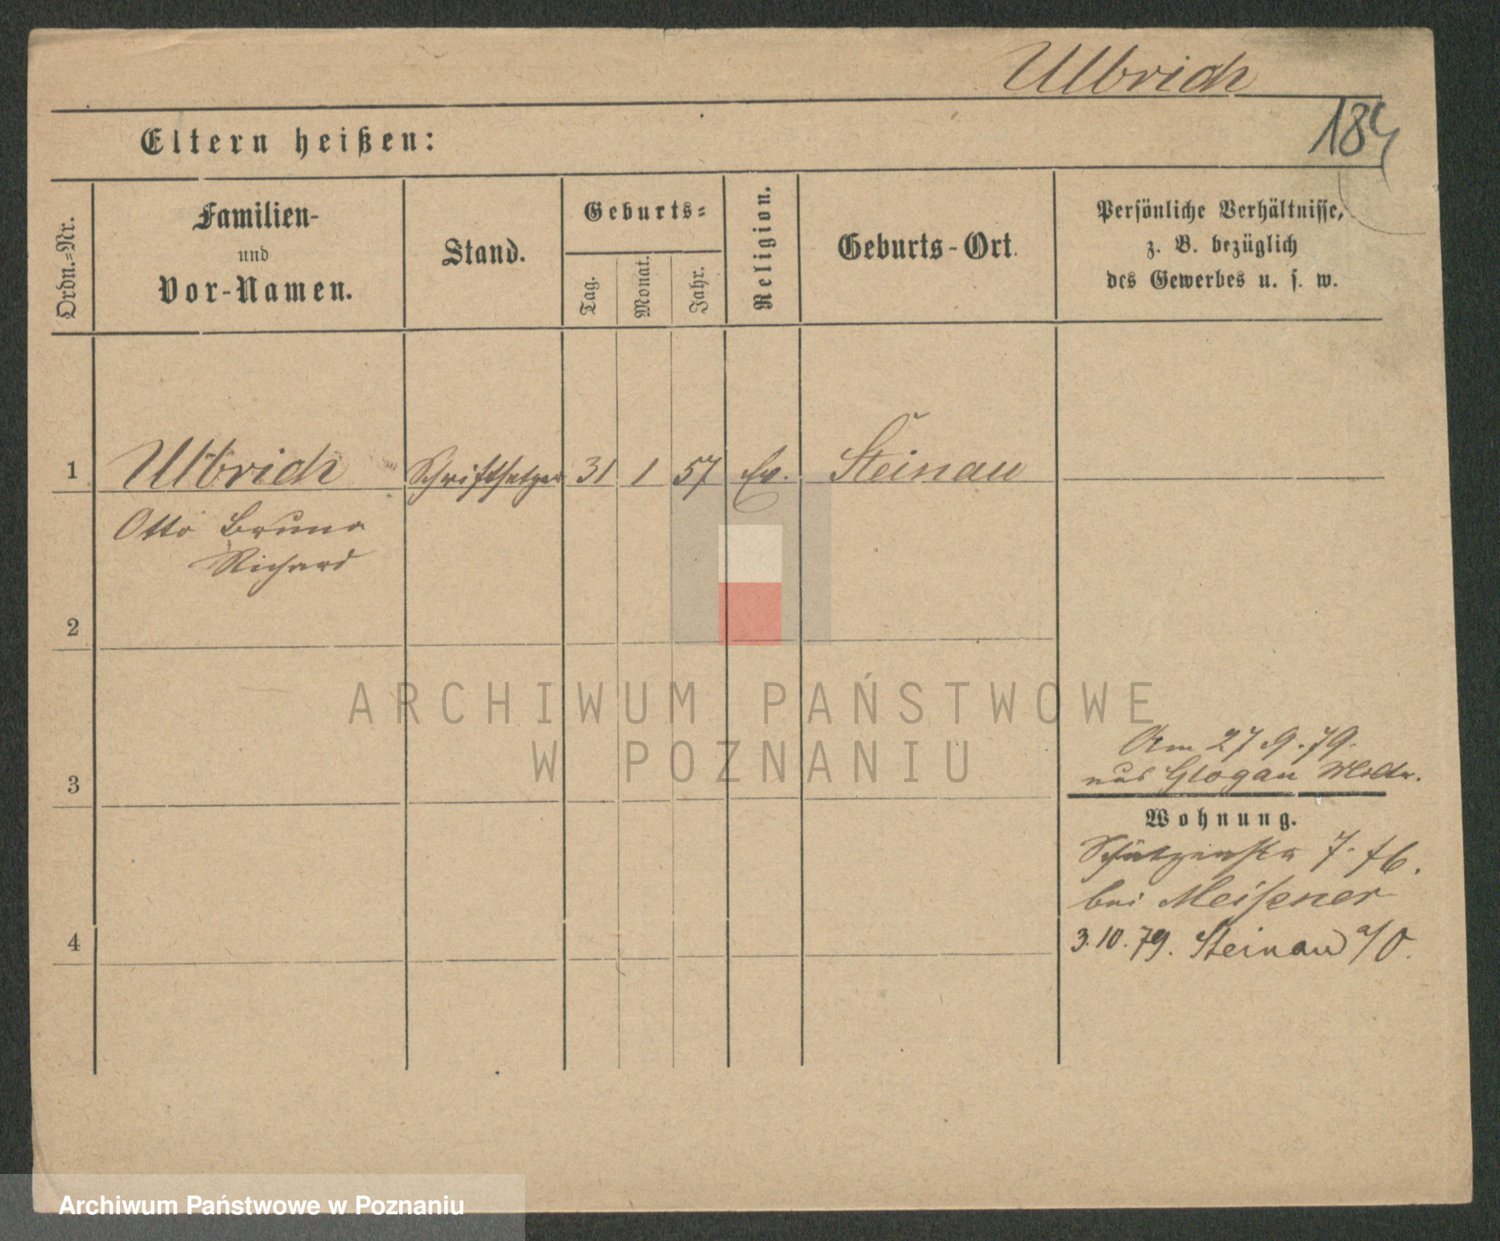 Ulbrich
184
Eltern heißen:
Ordn.=Nr.
Familien-
und
Vor-Namen.
Stand.
Geburts=
Tag.
Monat.
Jahr.
Religion.
Geburts-Ort.
Persönliche Verhältnisse,
z. B. bezüglich
des Gewerbes u. s. w.
1 Ulbrich Schriftsetzer 31 1 57 Ev. Steinau
Otto Bruno
Richard
2
ARCHIWUM PAŃSTWOWE
W POZNANIU
Am 27.9.79.
aus Glogau
3
Wohnung.
7.
bei Meißner
4
3.10.79. Steinau a/O.
Archiwum Państwowe w Poznaniu